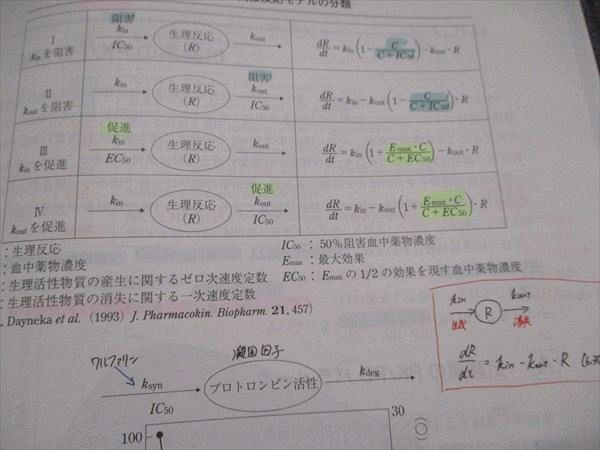 応モデルの分類
I
kinを阻害
阻害
kin
IC50
生理反応
(R)
kout
dR/dt = kin(1 − C/(C + IC50)) − kout・R
II
koutを阻害
kin
生理反応
(R)
阻害
kout
IC50
dR/dt = kin − kout(1 − C/(C + IC50))・R
III
kinを促進
促進
kin
EC50
生理反応
(R)
kout
dR/dt = kin(1 + Emax・C/(C + EC50)) − kout・R
IV
koutを促進
kin
生理反応
(R)
促進
kout
IC50
dR/dt = kin − kout(1 + Emax・C/(C + EC50))・R
：生理反応
：血中薬物濃度
：生理活性物質の産生に関するゼロ次速度定数
：生理活性物質の消失に関する一次速度定数
IC50：50%阻害血中薬物濃度
Emax：最大効果
EC50：Emaxの1/2の効果を現す血中薬物濃度
. Dayneka et al. (1993) J. Pharmacokin. Biopharm. 21, 457)
kin
生成
R
kout
消失
dR/dt = kin − kout・R
ワルファリン
凝固因子
ksyn
IC50
プロトロンビン活性
kdeg
100
30